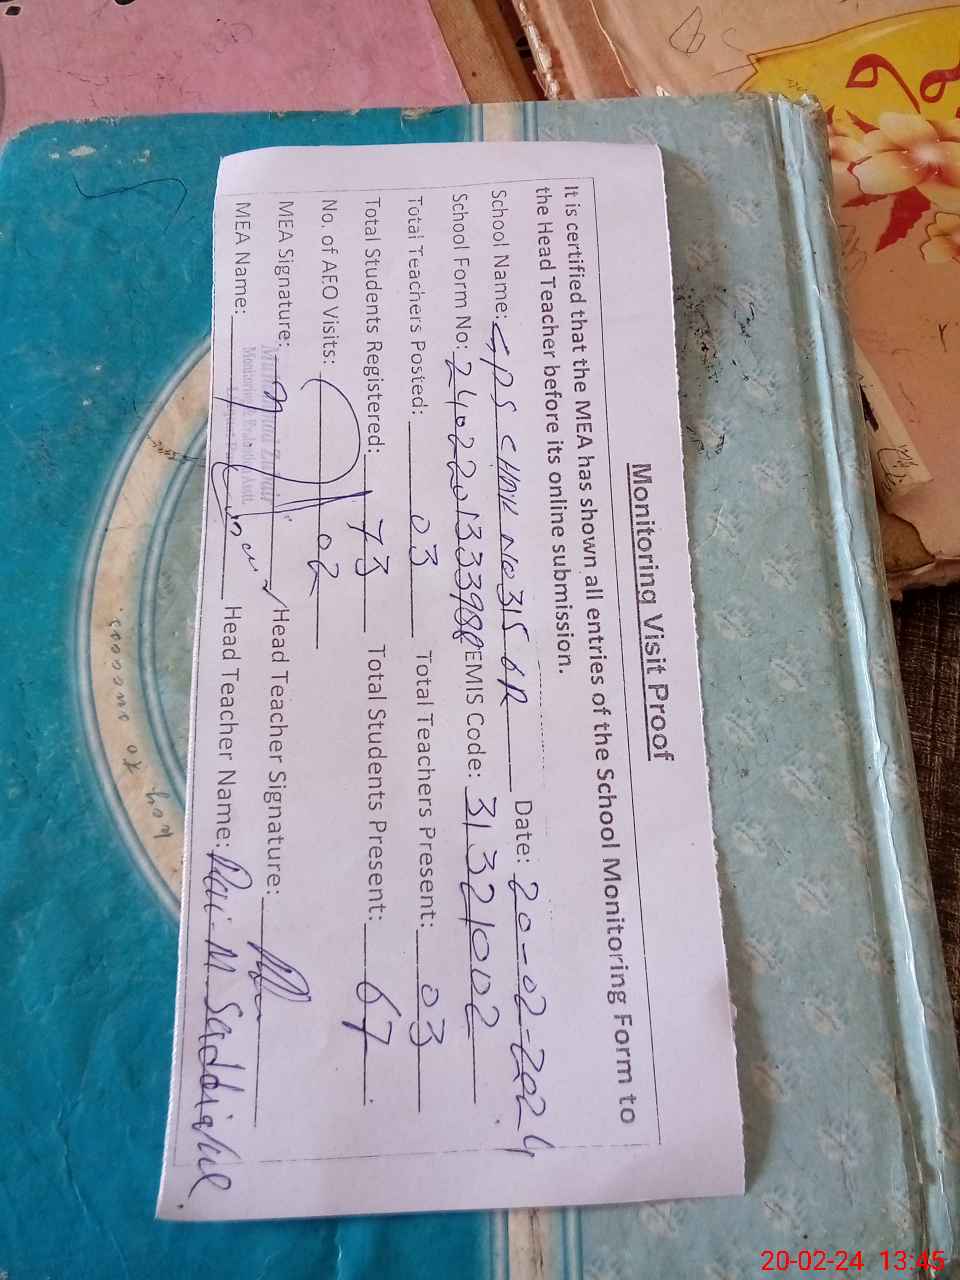 Monitoring Visit Proof
It is certified that the MEA has shown all entries of the School Monitoring Form to
the Head Teacher before its online submission.
School Name: GPS CHAK NO 315 GR Date: 20-02-2024
School Form No: EMIS Code: 31321002
Total Teachers Posted: 03 Total Teachers Present: 03
Total Students Registered: 73 Total Students Present: 67
No. of AEO Visits: 02
MEA Signature: Head Teacher Signature:
MEA Name: Head Teacher Name: Rai M Saddique
20-02-24 13:45